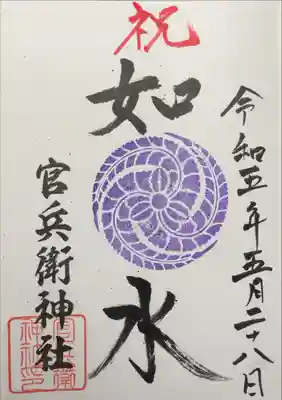 祝
令和五年五月二十八日
如水
官兵衛神社
官兵衛神社印